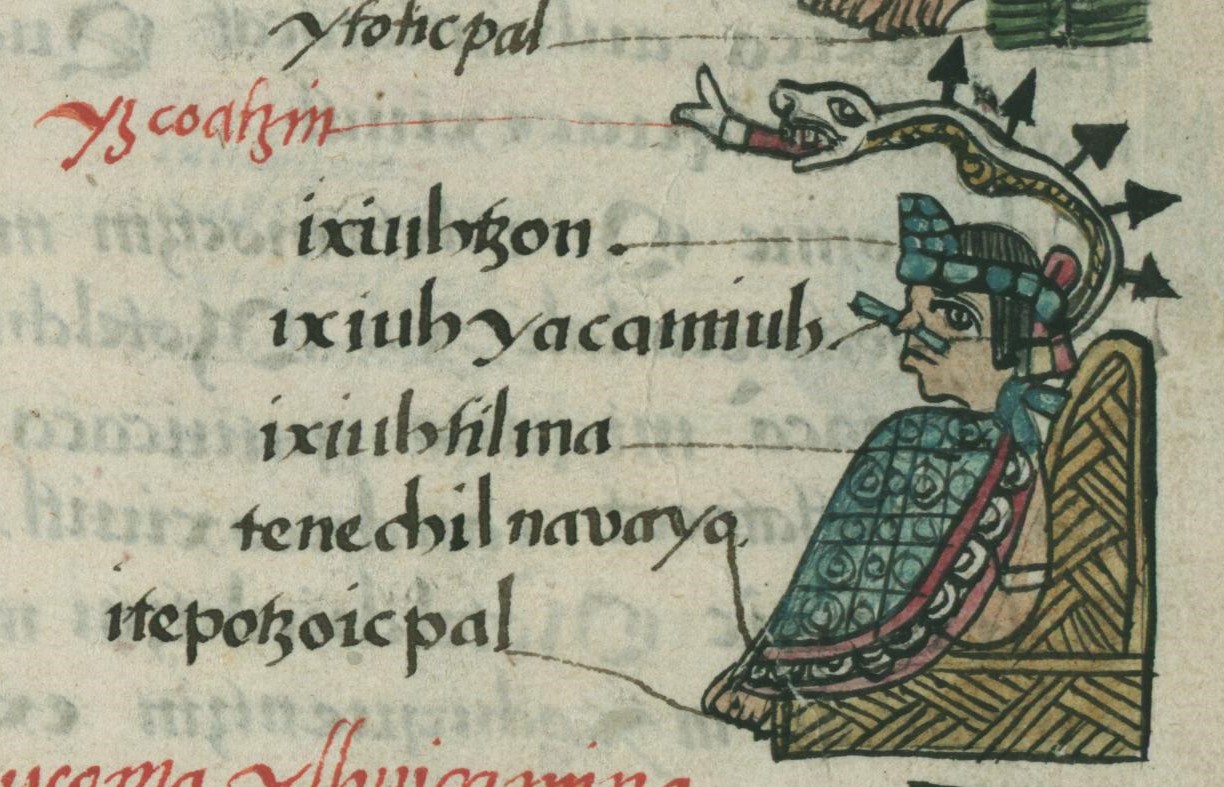 ytoticpal
yꜩcoaꜩin
ixiuhꜩon.
ixiuhyacamiuh
ixiuhtilma
tenechilnavayo.
itepoꜩoicpal